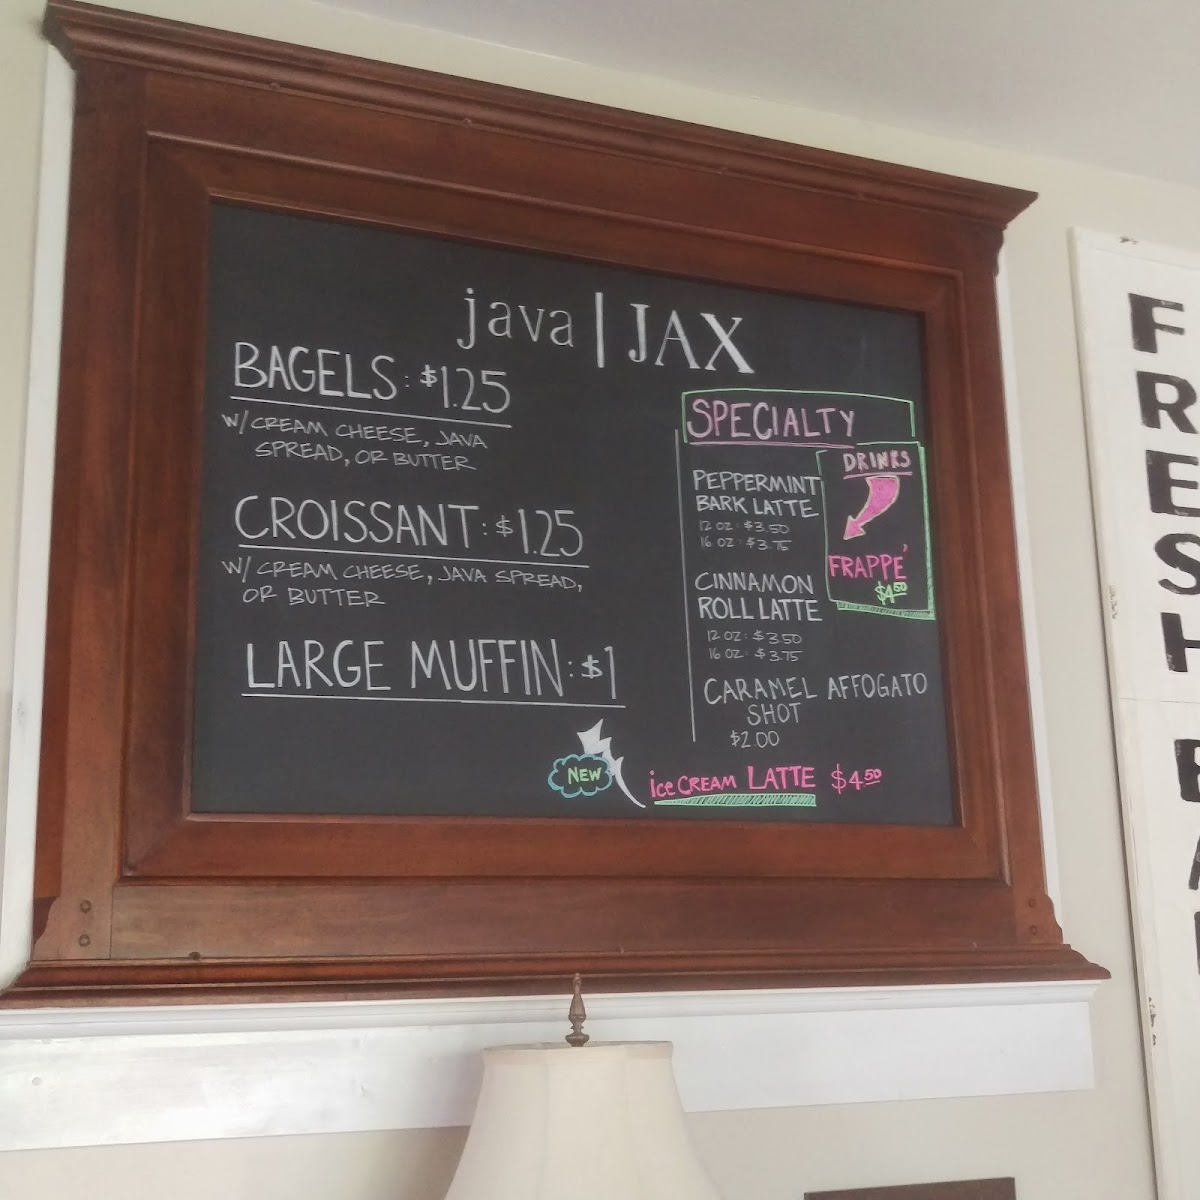 java | JAX
BAGELS: $1.25
W/ CREAM CHEESE, JAVA
SPREAD, OR BUTTER
CROISSANT: $1.25
W/ CREAM CHEESE, JAVA SPREAD,
OR BUTTER
LARGE MUFFIN: $1
SPECIALTY
DRINKS
PEPPERMINT
BARK LATTE
12 OZ: $3.50
16 OZ: $3.75
FRAPPE'
$4.50
CINNAMON
ROLL LATTE
12 OZ: $3.50
16 OZ: $3.75
CARAMEL AFFOGATO
SHOT
$2.00
NEW
ice CREAM LATTE $4.50
FRESH